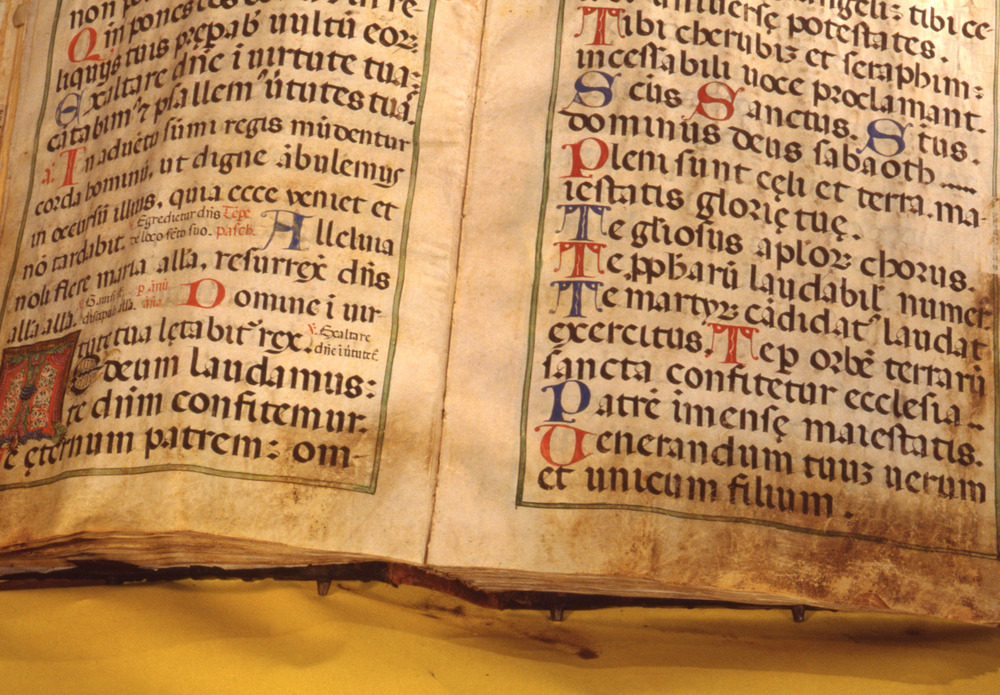 non pones
Q in pones
liquijs tuis prepab' uultū eoꝝ
Exaltare dn̄e ī uirtute tua:
cātabim⁹ ⁊ psallem⁹ ū́tutes tuā
a'. In aduētū sūmi regis mūdentur
corda hominū, ut digne ābulemus
in occursū illius, quia ecce veniet et
nō tardabit. Egredietur dn̄s Tēpe
de loco sc̄to suo. pasch. Alleluia
noli flere maria alla, resurrex̄ dn̄s
alla alla. Domine ī uir
tute tua lętabit' rex. ℣. Exaltare
dn̄e ī ū́tute
Te deum laudamus:
te dn̄m confitemur.
Te ęternum patrem: om-
angeli: tibi cę-
uniuersę potestates.
Tibi cherubiz et seraphim:
incessabili uoce proclamant.
Sc̄us Sanctus. Stus.
dominus deus sabaoth
Pleni sunt cęli et terra. ma-
iestatis glorię tuę.
Te gl̄iosus aploꝝ chorus.
Te ꝓpharū laudabil' numer
Te martyꝝ cādidat' laudat
exercitus. Te ꝑ orbē terrarū
sancta confitetur ecclesia
Patrē imensę maiestatis.
Uenerandum tuuz uerum
et unicum filium.